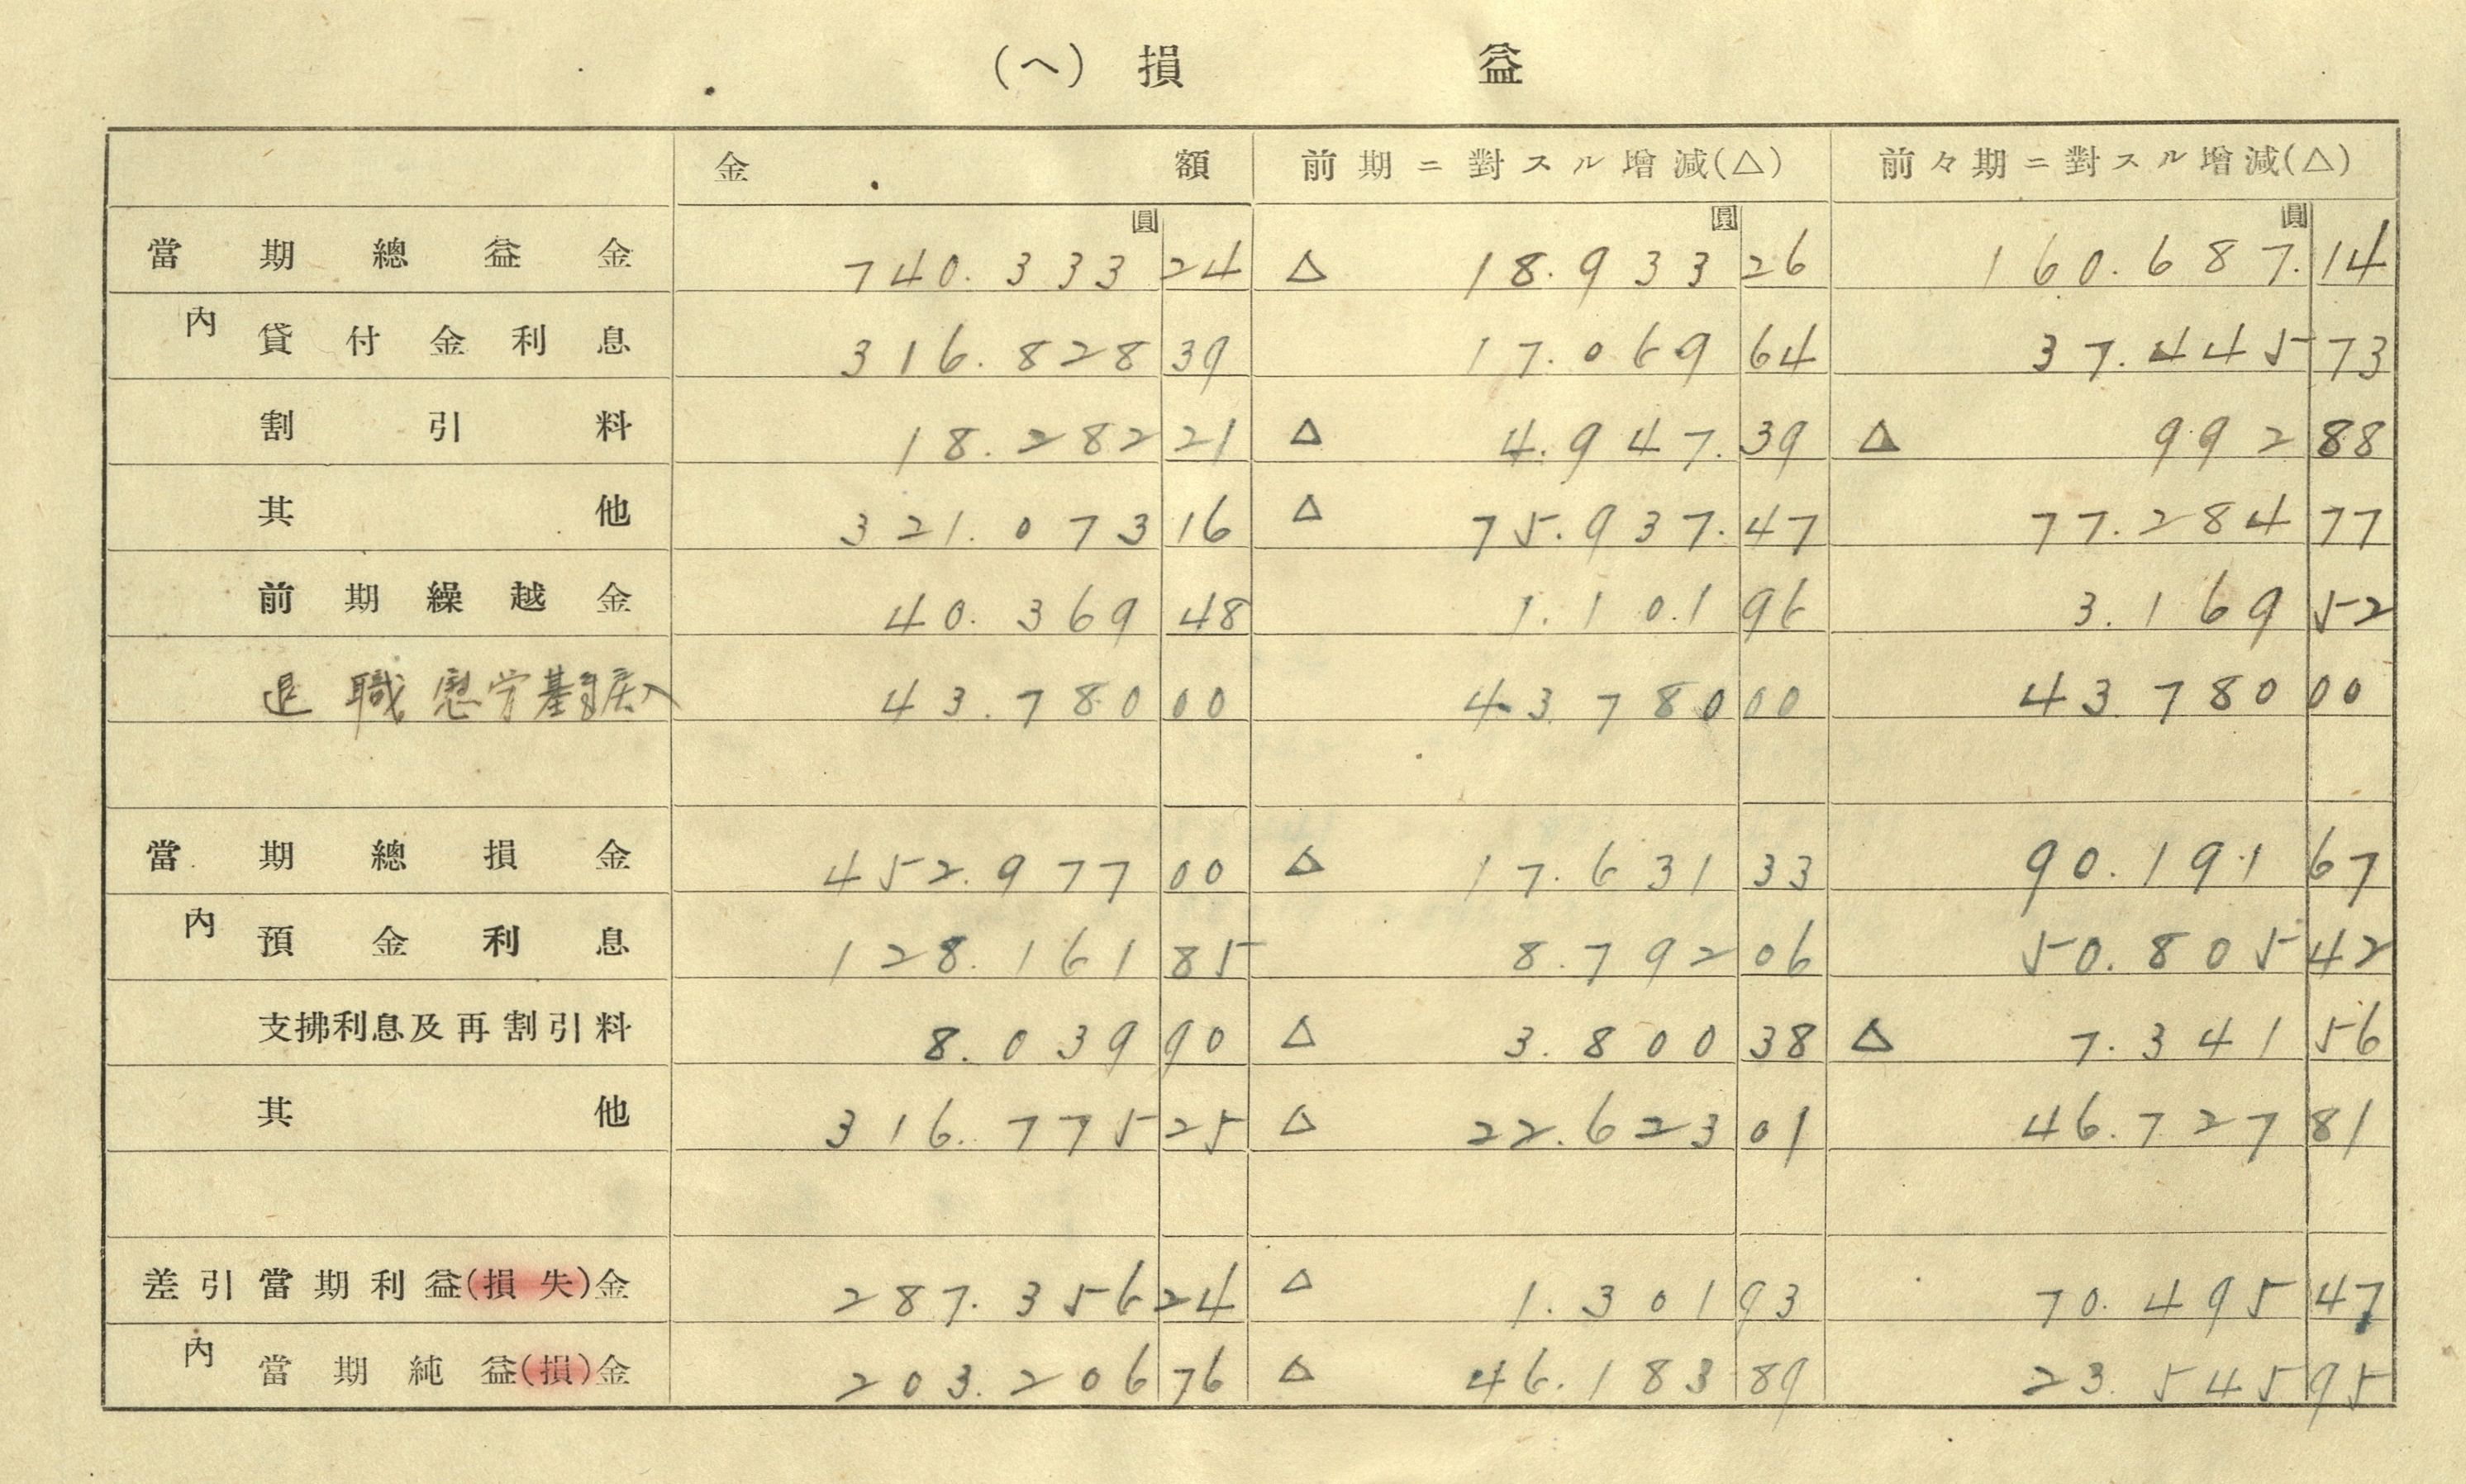 (ヘ) 損 益
金 額 前期ニ對スル增減(△) 前々期ニ對スル增減(△)
圓 圓 圓
當期總益金 740.333 24 △ 18.933 26 160.687. 14
內 貸付金利息 316.828 39 17.069 64 37.445 73
割引料 18.282 21 △ 4.947. 39 △ 992 88
其他 321.073 16 △ 75.937. 47 77.284 77
前期繰越金 40.369 48 1.101 96 3.169 52
退職慰労基金戻入 43.780 00 43.780 00 43.780 00
當期總損金 452.977 00 △ 17.631 33 90.191 67
內 預金利息 128.161 85 8.792 06 50.805 42
支拂利息及再割引料 8.039 90 △ 3.800 38 △ 7.341 56
其他 316.775 25 △ 22.623 01 46.727 81
差引當期利益(損失)金 287.356 24 △ 1.301 93 70.495 47
內 當期純益(損)金 203.206 76 △ 46.183 89 23.545 95